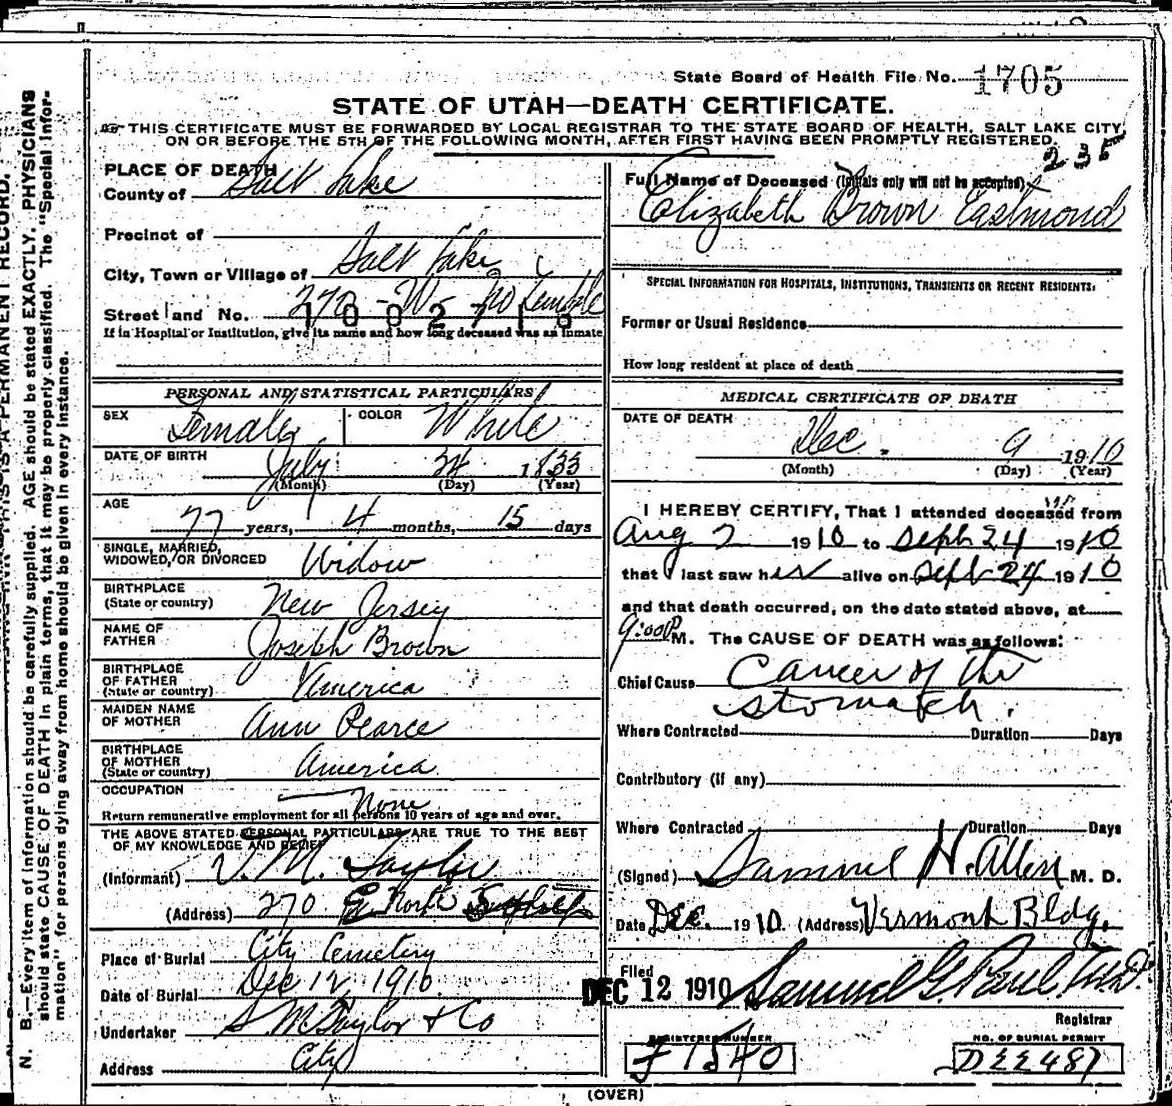 State Board of Health File No. 1705
STATE OF UTAH—DEATH CERTIFICATE.
THIS CERTIFICATE MUST BE FORWARDED BY LOCAL REGISTRAR TO THE STATE BOARD OF HEALTH, SALT LAKE CITY,
ON OR BEFORE THE 5TH OF THE FOLLOWING MONTH, AFTER FIRST HAVING BEEN PROMPTLY REGISTERED.
235
PLACE OF DEATH
County of Salt Lake
Precinct of
City, Town or Village of Salt Lake
Street and No. 270 - W- No Temple
If in Hospital or Institution, give its name and how long deceased was an inmate
PERSONAL AND STATISTICAL PARTICULARS
SEX Female COLOR White
DATE OF BIRTH July 24 1833
(Month) (Day) (Year)
AGE
77 years, 4 months, 15 days
SINGLE, MARRIED,
WIDOWED, OR DIVORCED Widow
BIRTHPLACE
(State or country) New Jersey
NAME OF
FATHER Joseph Brown
BIRTHPLACE
OF FATHER
(State or country) America
MAIDEN NAME
OF MOTHER Ann Pearce
BIRTHPLACE
OF MOTHER
(State or country) America
OCCUPATION None
Return remunerative employment for all persons 10 years of age and over.
THE ABOVE STATED PERSONAL PARTICULARS ARE TRUE TO THE BEST
OF MY KNOWLEDGE AND BELIEF
(Informant) M. Taylor
(Address) 270 North
Place of Burial City Cemetery
Date of Burial Dec 12, 1910
Undertaker S M Taylor + Co
Address City
Full Name of Deceased (Initials only will not be accepted)
Elizabeth Brown Eastmond
SPECIAL INFORMATION FOR HOSPITALS, INSTITUTIONS, TRANSIENTS OR RECENT RESIDENTS:
Former or Usual Residence
How long resident at place of death
MEDICAL CERTIFICATE OF DEATH
DATE OF DEATH
Dec. 9 1910
(Month) (Day) (Year)
I HEREBY CERTIFY, That I attended deceased from
Aug 2 1910 to Sept 24 1910
that I last saw her alive on Sept 24 1910
and that death occurred, on the date stated above, at
9:00 P M. The CAUSE OF DEATH was as follows:
Chief Cause Cancer of the
stomach.
Where Contracted Duration Days
Contributory (if any)
Where Contracted Duration Days
(Signed) Samuel H. Allen M. D.
Date Dec. 1910 (Address) Vermont Bldg.
Filed
DEC 12 1910 Samuel G. Paul, M.D.
Registrar
REGISTERED NUMBER
1540
NO. OF BURIAL PERMIT
DEE487
(OVER)
N. B.—Every item of information should be carefully supplied. AGE should be stated EXACTLY. PHYSICIANS
should state CAUSE OF DEATH in plain terms, that it may be properly classified. The "Special Infor-
mation" for persons dying away from home should be given in every instance.